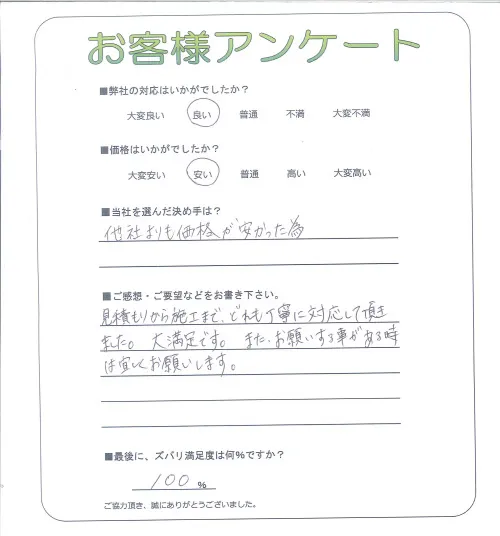 お客様アンケート
■弊社の対応はいかがでしたか？
大変良い 良い 普通 不満 大変不満
■価格はいかがでしたか？
大変安い 安い 普通 高い 大変高い
■当社を選んだ決め手は？
他社よりも価格が安かった為
■ご感想・ご要望などをお書き下さい。
見積もりから施工まで、どれも丁寧に対応して頂き
ました。大満足です。また、お願いする事がある時
は宜しくお願いします。
■最後に、ズバリ満足度は何％ですか？
100 %
ご協力頂き、誠にありがとうございました。